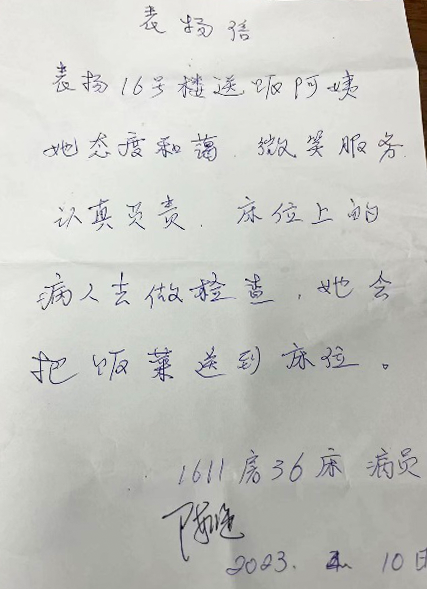 表扬信
表扬16号楼送饭阿姨
她态度和蔼.微笑服务.
认真负责.床位上的
病人去做检查,她会
把饭菜送到床位。
1611房36床 病员
2023. 10日